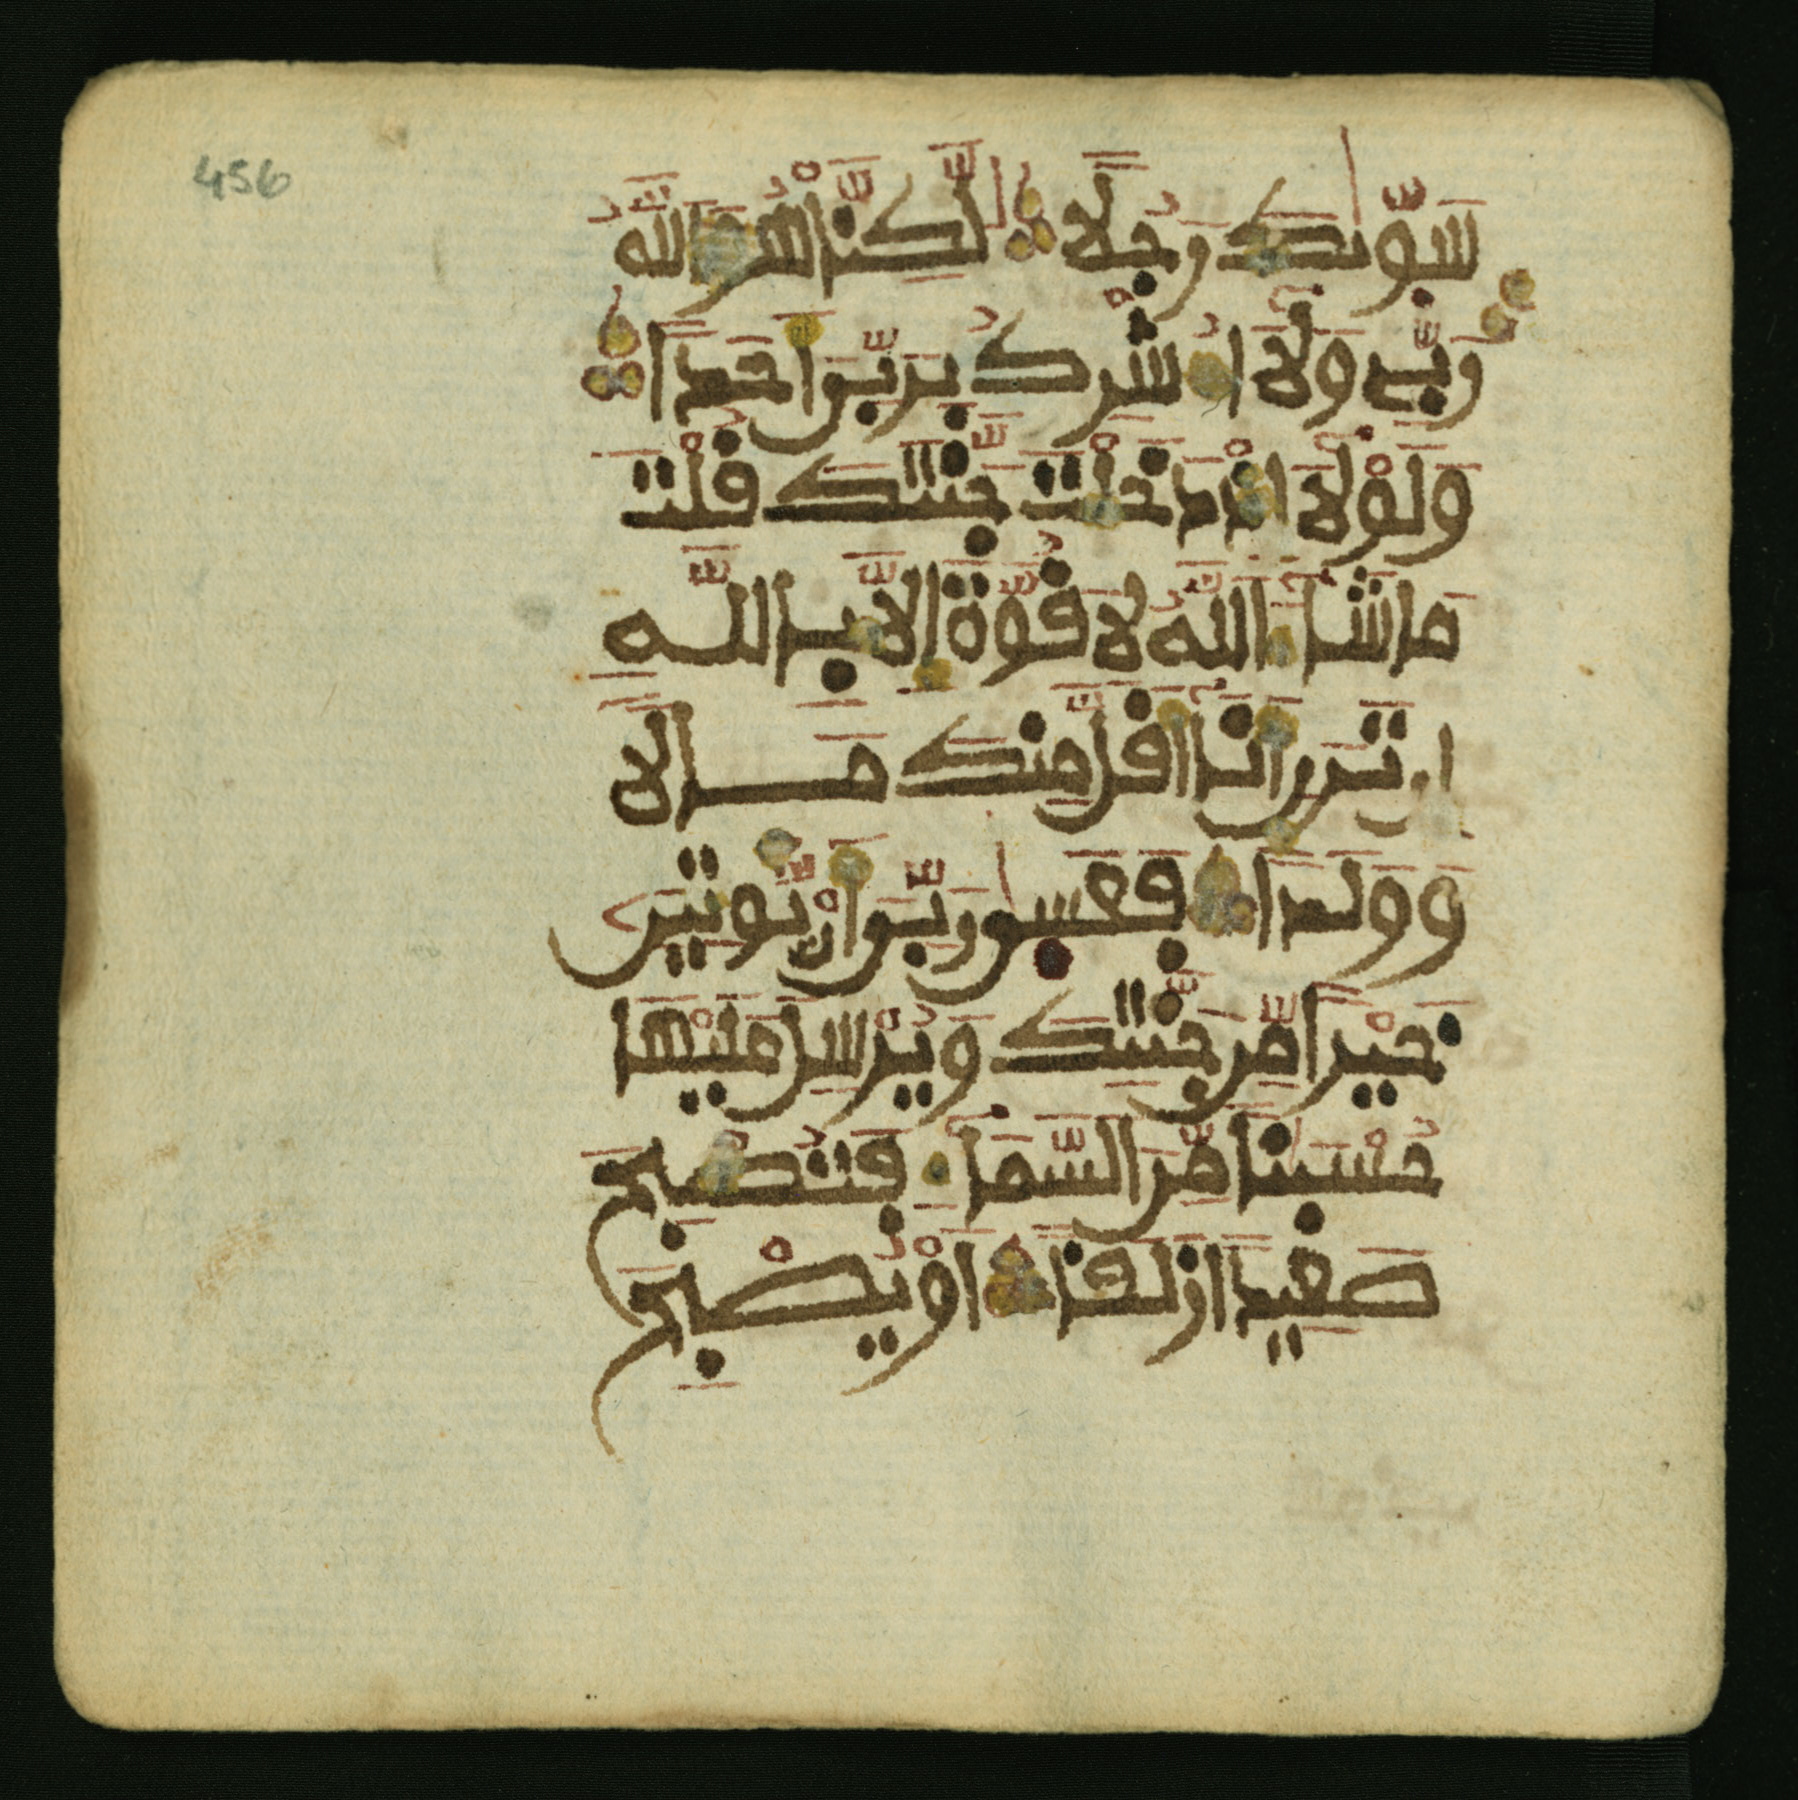 456
سَوّٰىكَ رَجُلًا لَّٰكِنَّا۠ هُوَ اَللَّهُ
رَبِّے وَلَآ أُشْرِكُ بِرَبِّىَ أَحَدًا
وَلَوْلَآ إِذْ دَخَلْتَ جَنَّتَكَ قُلْتَ
مَا شَآءَ اَللَّهُ لَا قُوَّةَ إِلَّا بِاللَّهِ
إِن تَرَنِ أَنَآ أَقَلَّ مِنكَ مَالًا
وَوَلَدًا فَعَسٰى رَبِّىَ أَنْ يُّوتِيَنِ
خَيْرًا مِّن جَنَّتِكَ وَيُرْسِلَ عَلَيْهَا
حُسْبَٰنًا مِّنَ اَلسَّمَآءِ فَتُصْبِحَ
صَعِيدًا زَلَقًا أَوْ يُصْبِحَ